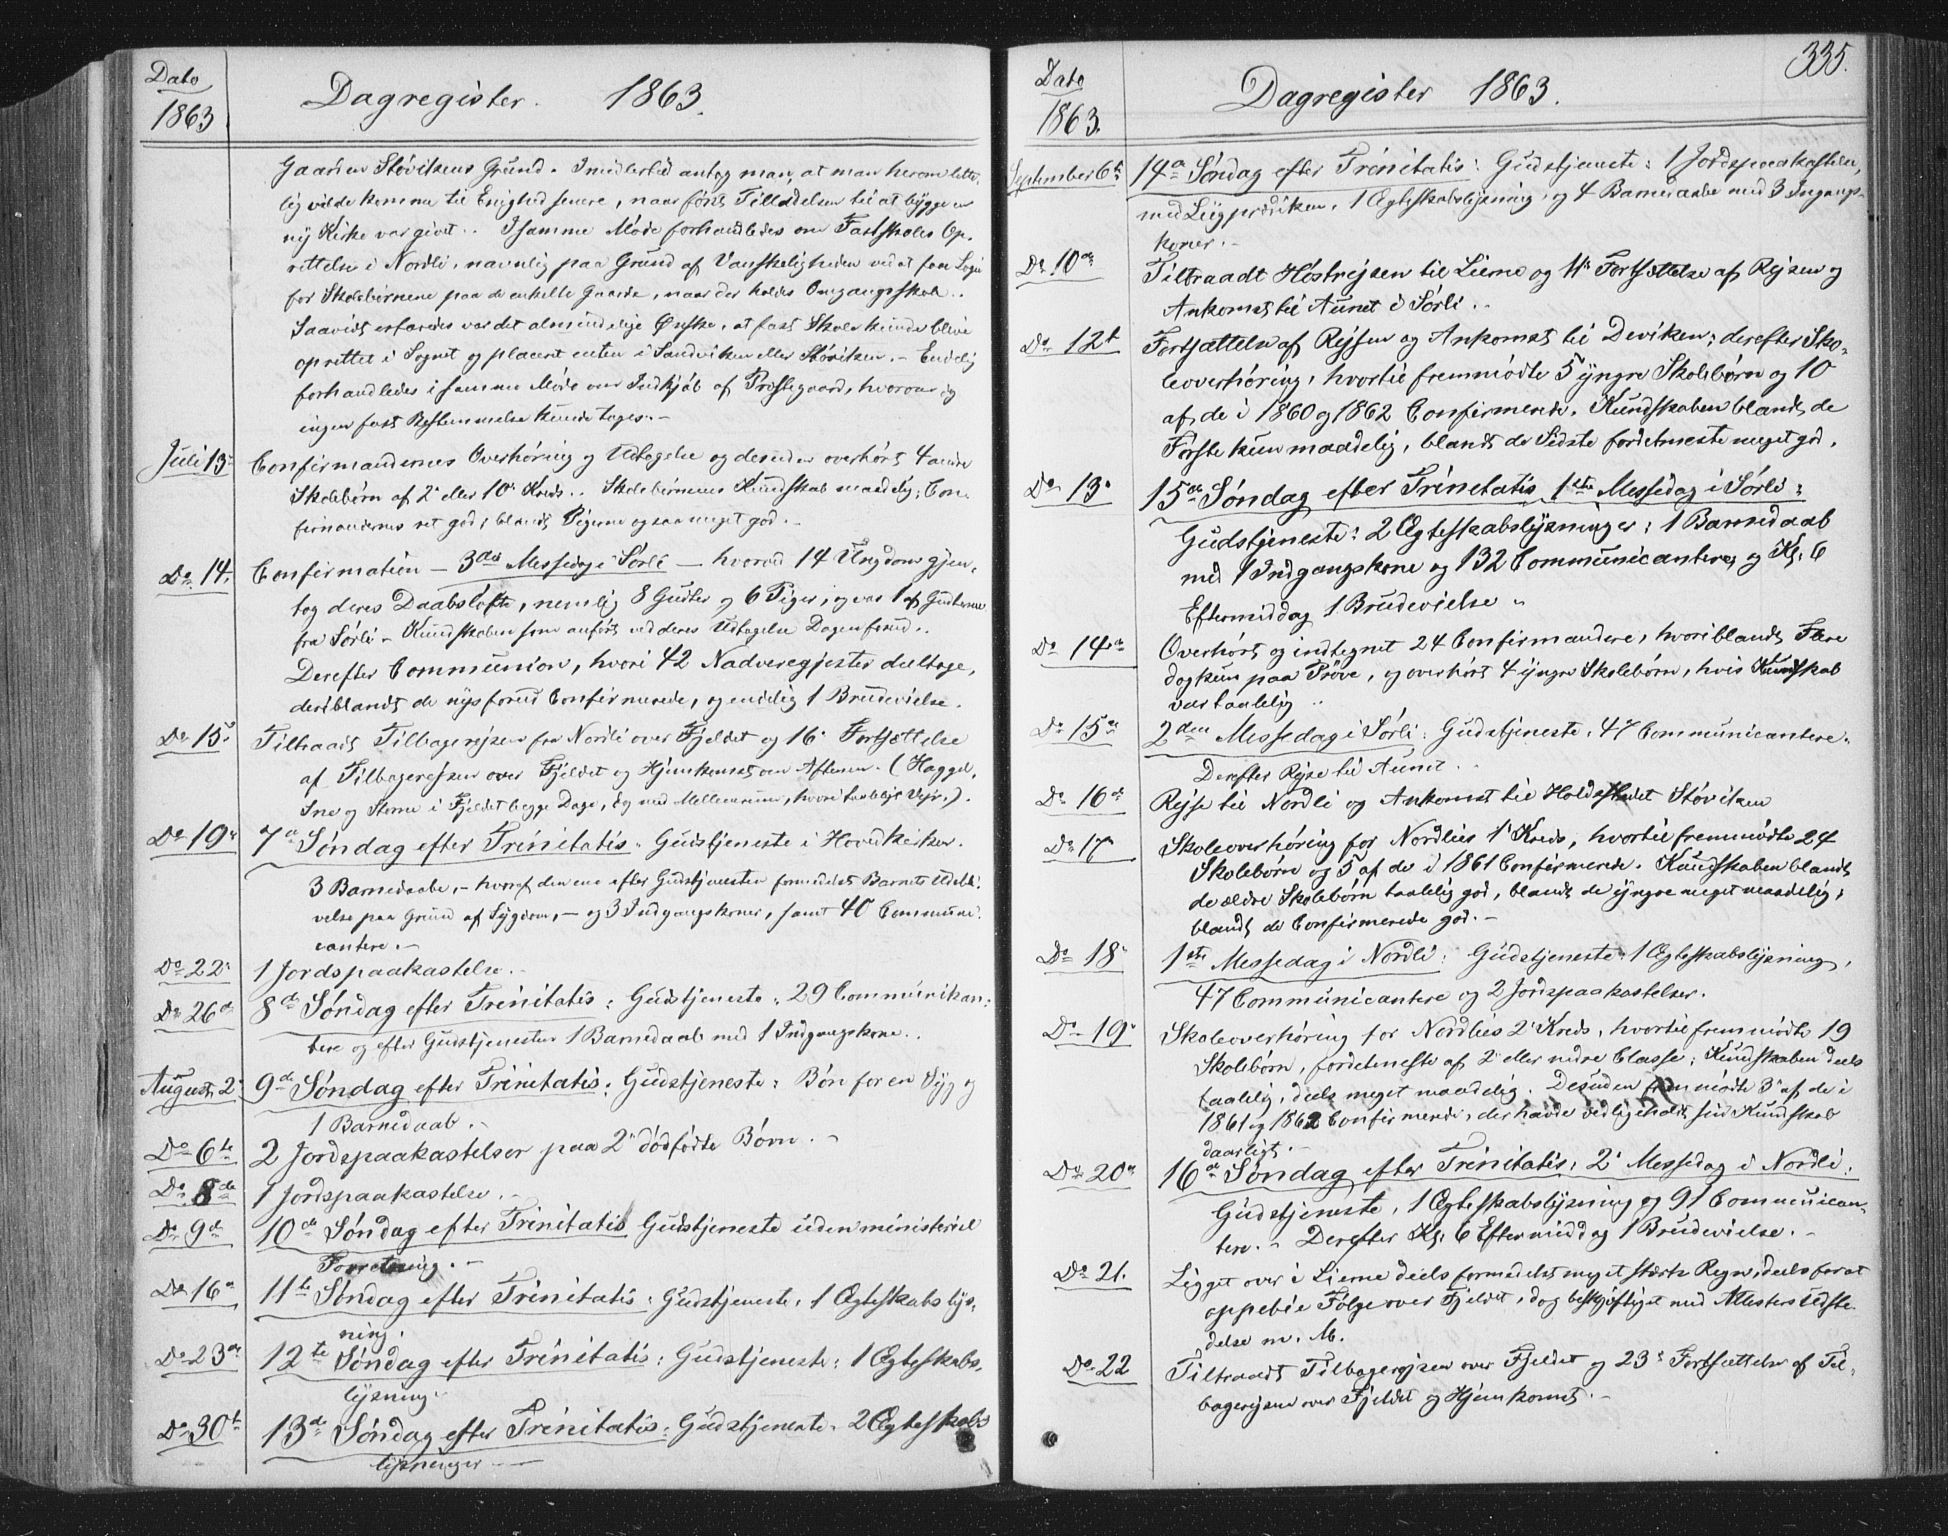 Dato
1863
Dagregister. 1863.
Gaarden Støvikens Grund. Imidlertid antog man, at man herom lette-
lig vilde komme til Enighed senere, naar først Tilladelsen til at bygge en
ny Kirke var givet. I samme Møde forhandledes om Fastskoles Op-
rettelse i Nordli, navnlig paa Grund af Vanskeligheden ved at faae Logi
for Skolebørnene paa de enkelte Gaarde, naar der holdes Omgangsskole.
Saavidt erfaredes var det almindelige Ønske, at fast Skole kunde blive
oprettet i Sognet og placeret enten i Sandviken eller Støviken. - Endelig
forhandledes i samme Møde om Indkjøb af Præstegaard, hvorom og
ingen fast Bestemmelse kunde tages. -
Juli 13de Confirmandernes Overhøring og Udtagelse og desuden overhørt 4 andre
Skolebørn af 2' eller 10' Kreds. Skolebørnenes Kundskab maadelig; Con-
firmandernes ret god, blandt Pigerne ogsaa meget god. -
Do 14. Confirmation - 3die Messedag i Sørli - hvorved 14 Ungdom gjen-
tog deres Daabsløfte, nemlig 8 Gutter og 6 Piger, og var 1 af Gutterne
fra Sørli - Kundskaben som anført ved deres Udtagelse Dagen forud.
Derefter Communion, hvori 42 Nadveregjester deeltoge,
deriblandt de nys forud Confirmerede, og endelig 1 Brudevielse.
Do 15' Tiltraadt Tilbagerejsen fra Nordli over Fjeldet og 16' Fortsættelse
af Tilbagerejsen over Fjeldet og Hjemkomst om Aftenen. (Haggel,
Sne og Storm i Fjeldet begge Dage, dog med Mellemrum, hvori taaleligt Vejr.).
Do 19' 7de Søndag efter Trinitatis. Gudstjeneste i Hovedkirken.
3 Barnedaabe, - hvoraf den ene efter Gudstjenesten formedelst Barnets Udebli-
velse paa Grund af Sygdom, - og 3 Indgangskoner, samt 40 Communi-
cantere. -
Do 22' 1 Jordspaakastelse. -
Do 26de 8de Søndag efter Trinitatis: Gudstjeneste: 29 Communikan-
tere og efter Gudstjenesten 1 Barnedaab med 1 Indgangskone.
August 2' 9de Søndag efter Trinitatis: Gudstjeneste: Bøn for en Syg og
1 Barnedaab. -
Do 6te 2 Jordspaakastelser paa 2' dødfødte Børn. -
Do 8de 1 Jordspaakastelse. -
Do 9de 10de Søndag efter Trinitatis Gudstjeneste uden ministeriel
Forretning. -
Do 16de 11te Søndag efter Trinitatis: Gudstjeneste, 1 Ægteskabslys-
ning.
Do 23de 12te Søndag efter Trinitatis: Gudstjeneste: 1 Ægteskabs-
lysning.
Do 30te 13de Søndag efter Trinitatis: Gudstjeneste. 2 Ægteskabs
lysninger -
335.
Dato
1863.
Dagregister 1863.
September 6te 14de Søndag efter Trinitatis: Gudstjeneste: 1 Jordspaakastelse,
med Liigprædiken, 1 Ægteskabslysning, og 4 Barnedaabe med 3 Ingangs-
koner. -
Do 10de Tiltraadt Høstrejsen til Lierne og 11' Fortsættelse af Rejsen og
Ankomst til Aunet i Sørli.
Do 12te Fortsættelse af Rejsen og Ankomst til Deviken; derefter Sko-
leoverhøring, hvortil fremmødte 5 yngre Skolebørn og 10
af de i 1860 og 1862 Confirmerede. Kundskaben blandt de
Første kun maadelig, blandt de Sidste fordetmeste meget god.
Do 13' 15de Søndag efter Trinitatis 1ste Messedag i Sørli:
Gudstjeneste: 2 Ægteskabslysninger; 1 Barnedaab
med 1 Indgangskone og 132 Communicantere, og Kl. 6
Eftermiddag 1 Brudevielse -
Do 14de Overhørt og indtegnet 24 Confirmandere, hvoriblandt Flere
dog kun paa Prøve, og overhørt 4 yngre Skolebørn, hvis Kundskab
var taalelig.
Do 15de 2den Messedag i Sørli: Gudstjeneste, 47 Communicantere.
Derefter Rejse til Aunet.
Do 16de Rejse til Nordli og Ankomst til Holdstedet Støviken
Do 17' Skoleoverhøring for Nordlies 1' Kreds, hvortil fremmødte 24
Skolebørn og 5 af de i 1861 Confirmerede. Kundskaben blandt
de ældre Skolebørn taalelig god, blandt de yngre meget maadelig;
blandt de Confirmerede god. -
Do 18' 1ste Messedag i Nordli: Gudstjeneste: 1 Ægteskabslysning,
47 Communicantere og 2 Jordspaakastelser.
Do 19' Skoleoverhøring for Nordlies 2' Kreds, hvortil fremmødte 19
Skolebørn, fordetmeste af 2' eller nedre Classe; Kundskaben deels
taalelig, deels meget maadelig. Desuden fremmødte 3' af de i
1861 og 1862 Confirmerede, der havde vedligeholdt sin Kundskab
daarligt. -
Do 20de 16de Søndag efter Trinitatis: 2' Messedag i Nordli:
Gudstjeneste, 1 Ægteskabslysning og 91 Communican-
tere. - Derefter Kl. 6 Eftermiddag 1 Brudevielse. -
Do 21. Ligget over i Lierne deels formedelst meget stærk Regn, deels for at
oppebie Følge over Fjeldet, dog beskjæftiget med Attesters Udste-
delse m. M.
Do 22 Tiltraadt Tilbagerejsen over Fjeldet og 23' Fortsættelse af Til-
bagerejsen over Fjeldet og Hjemkomst. -